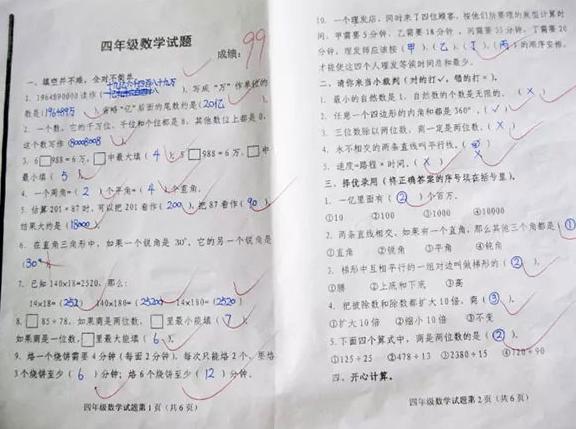 四年级数学试题
成绩: 99
一、填空并不难,全对不简单.
1. 1964890000读作( ),写成“万”作单位的
数是(196489万),省略“亿”后面的尾数约是(20亿)
2. 一个数,它的千万位、千位和个位都是8,其他数位上都是0,
这个数写作(80008008)
3. 6□988≈6万,□中最大填(4);5□988≈6万,□中
最小填(5)
4. 一个周角=(2)个平角=(4)个直角.
5. 估算201×87时,可以把201看作(200),把87看作(90)
结果大约是(18000).
6. 在直角三角形中,如果一个锐角是30°,它的另一个锐角是
7. 已知140×18=2520,那么:
14×18=(252) 140×180=(25200) 14×180=(2520)
8. □85÷78,如果商是两位数,□里最小能填(7),
如果商是一位数,□里最大能填(6).
9. 烙一个烧饼需要4分钟(每面2分钟),每次只能烙2个,要烙
3个烧饼至少(6)分钟;烙6个烧饼至少(12)分钟.
四年级数学试题第1页(共6页)
10. 一个理发店,同时来了四位顾客,按他们所要理的发型计算时
间,甲需要5分钟,乙需要18分钟,丁需要20
分钟,理发师应该按(甲)、(乙)、(丁)、(丙)的顺序安排,
才能使这四个人理发等候时间总和最少.
二、请你来当小裁判(对的打√,错的打×).
1. 最小的自然数是1,自然数的个数是无限的.(×)
2. 任意一个四边形的内角和都是360°.(√)
3. 三位数除以两位数,商一定是两位数.(×)
4. 永不相交的两条直线叫平行线.
5. 速度=路程×时间.(×)
三、择优录用(将正确答案的序号填在括号里).
1. 一亿里面有(②)个百万.
①10 ②100 ③1000 ④10000
2. 两条直线相交,如果有一个直角,那么其他三个角都是(①)
①直角 ②锐角 ③平角 ④钝角
3. 梯形中互相平行的一组对边叫做梯形的(②).
①腰 ②上底和下底 ③高
4. 把被除数和除数都扩大10倍,商(③).
①扩大10倍 ②缩小10倍 ③不变
5. 下面四个算式中,商是两位数的是(②).
①125÷25 ②478÷13 ③2380÷15 ④720÷90
四、开心计算.
四年级数学试题第2页(共6页)